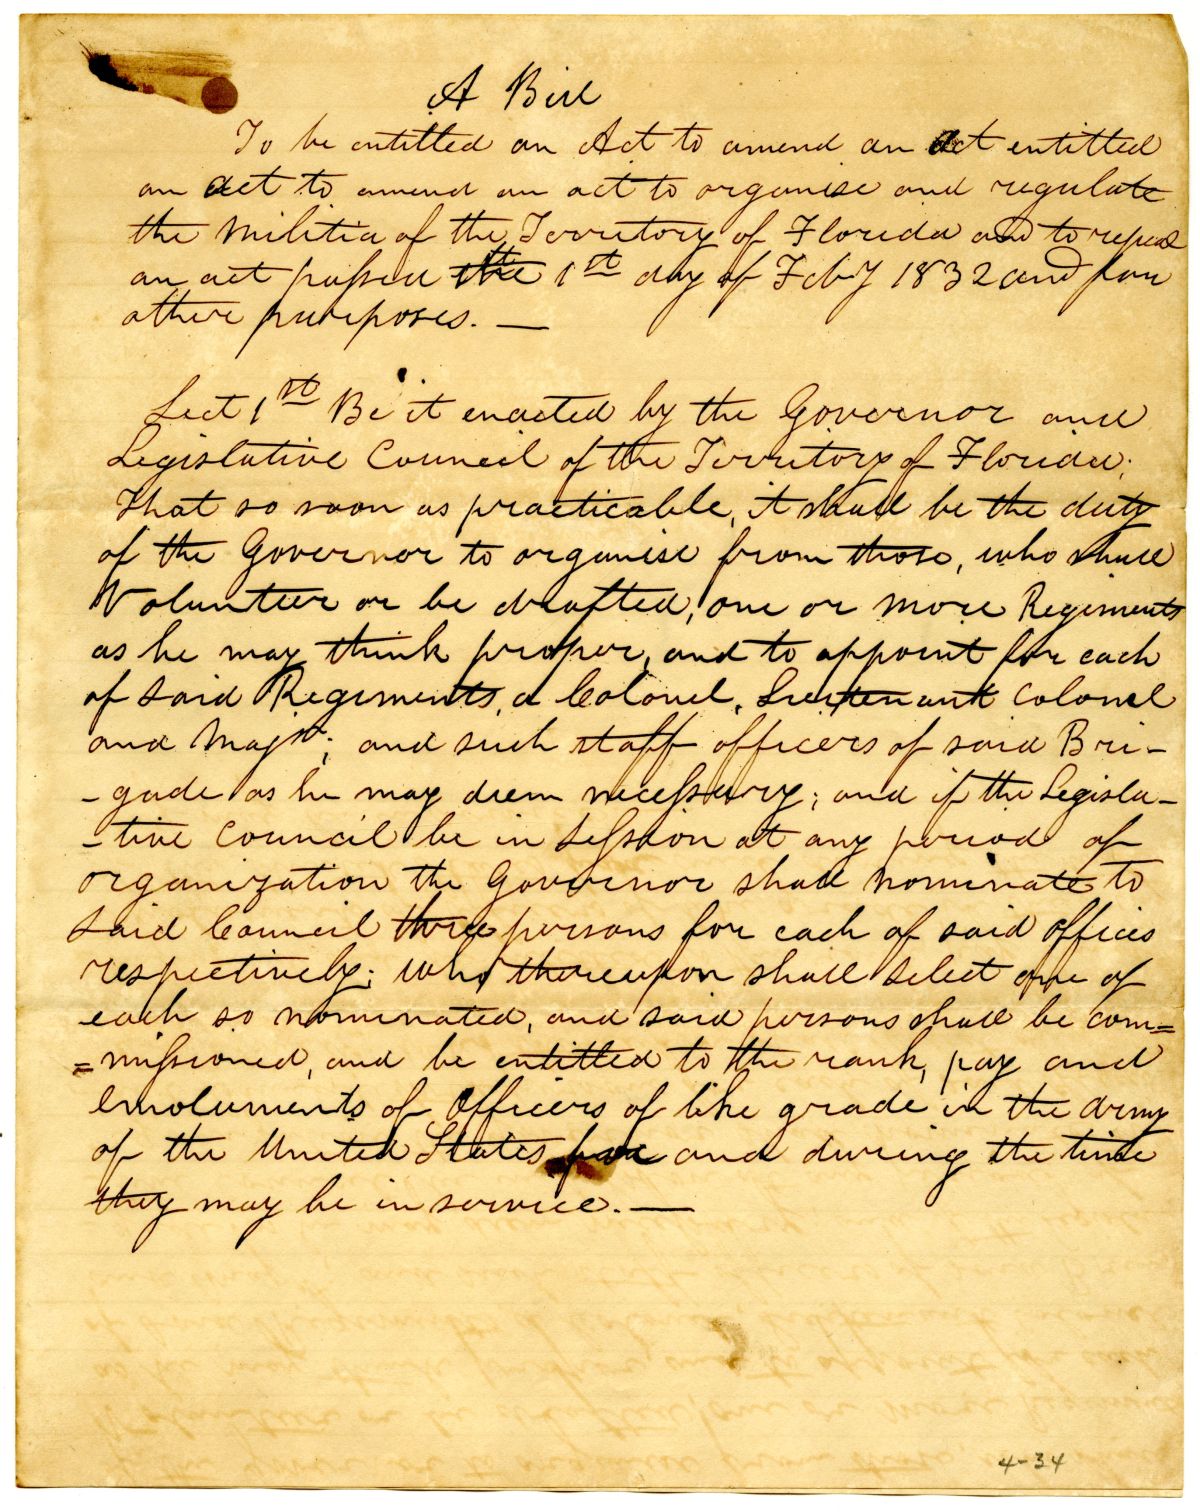 A Bill
To be entitled an Act to amend an act entitled
an act to amend an act to organise and regulate
the Militia of the Territory of Florida and to repeal
an act passed the 1st day of Feby 1832 and for
other purposes. —
Sect 1st Be it enacted by the Governor and
Legislative Council of the Territory of Florida;
That so soon as practicable, it shall be the duty
of the Governor to organise from those, who shall
Volunteer or be drafted, one or more Regiments
as he may think proper, and to appoint for each
of said Regiments, a Colonel, Lieutenant Colonel
and Majr; and such staff officers of said Bri-
-gade as he may deem necessary; and if the Legisla-
-tive Council be in Session at any period of
organization the Governor shall nominate to
said Council three persons for each of said offices
respectively; who thereupon shall select one of
each so nominated, and said persons shall be com=
=missioned, and be entitled to the rank, pay and
emoluments of Officers of like grade in the army
of the United States for and during the time
they may be in service. —
4-34